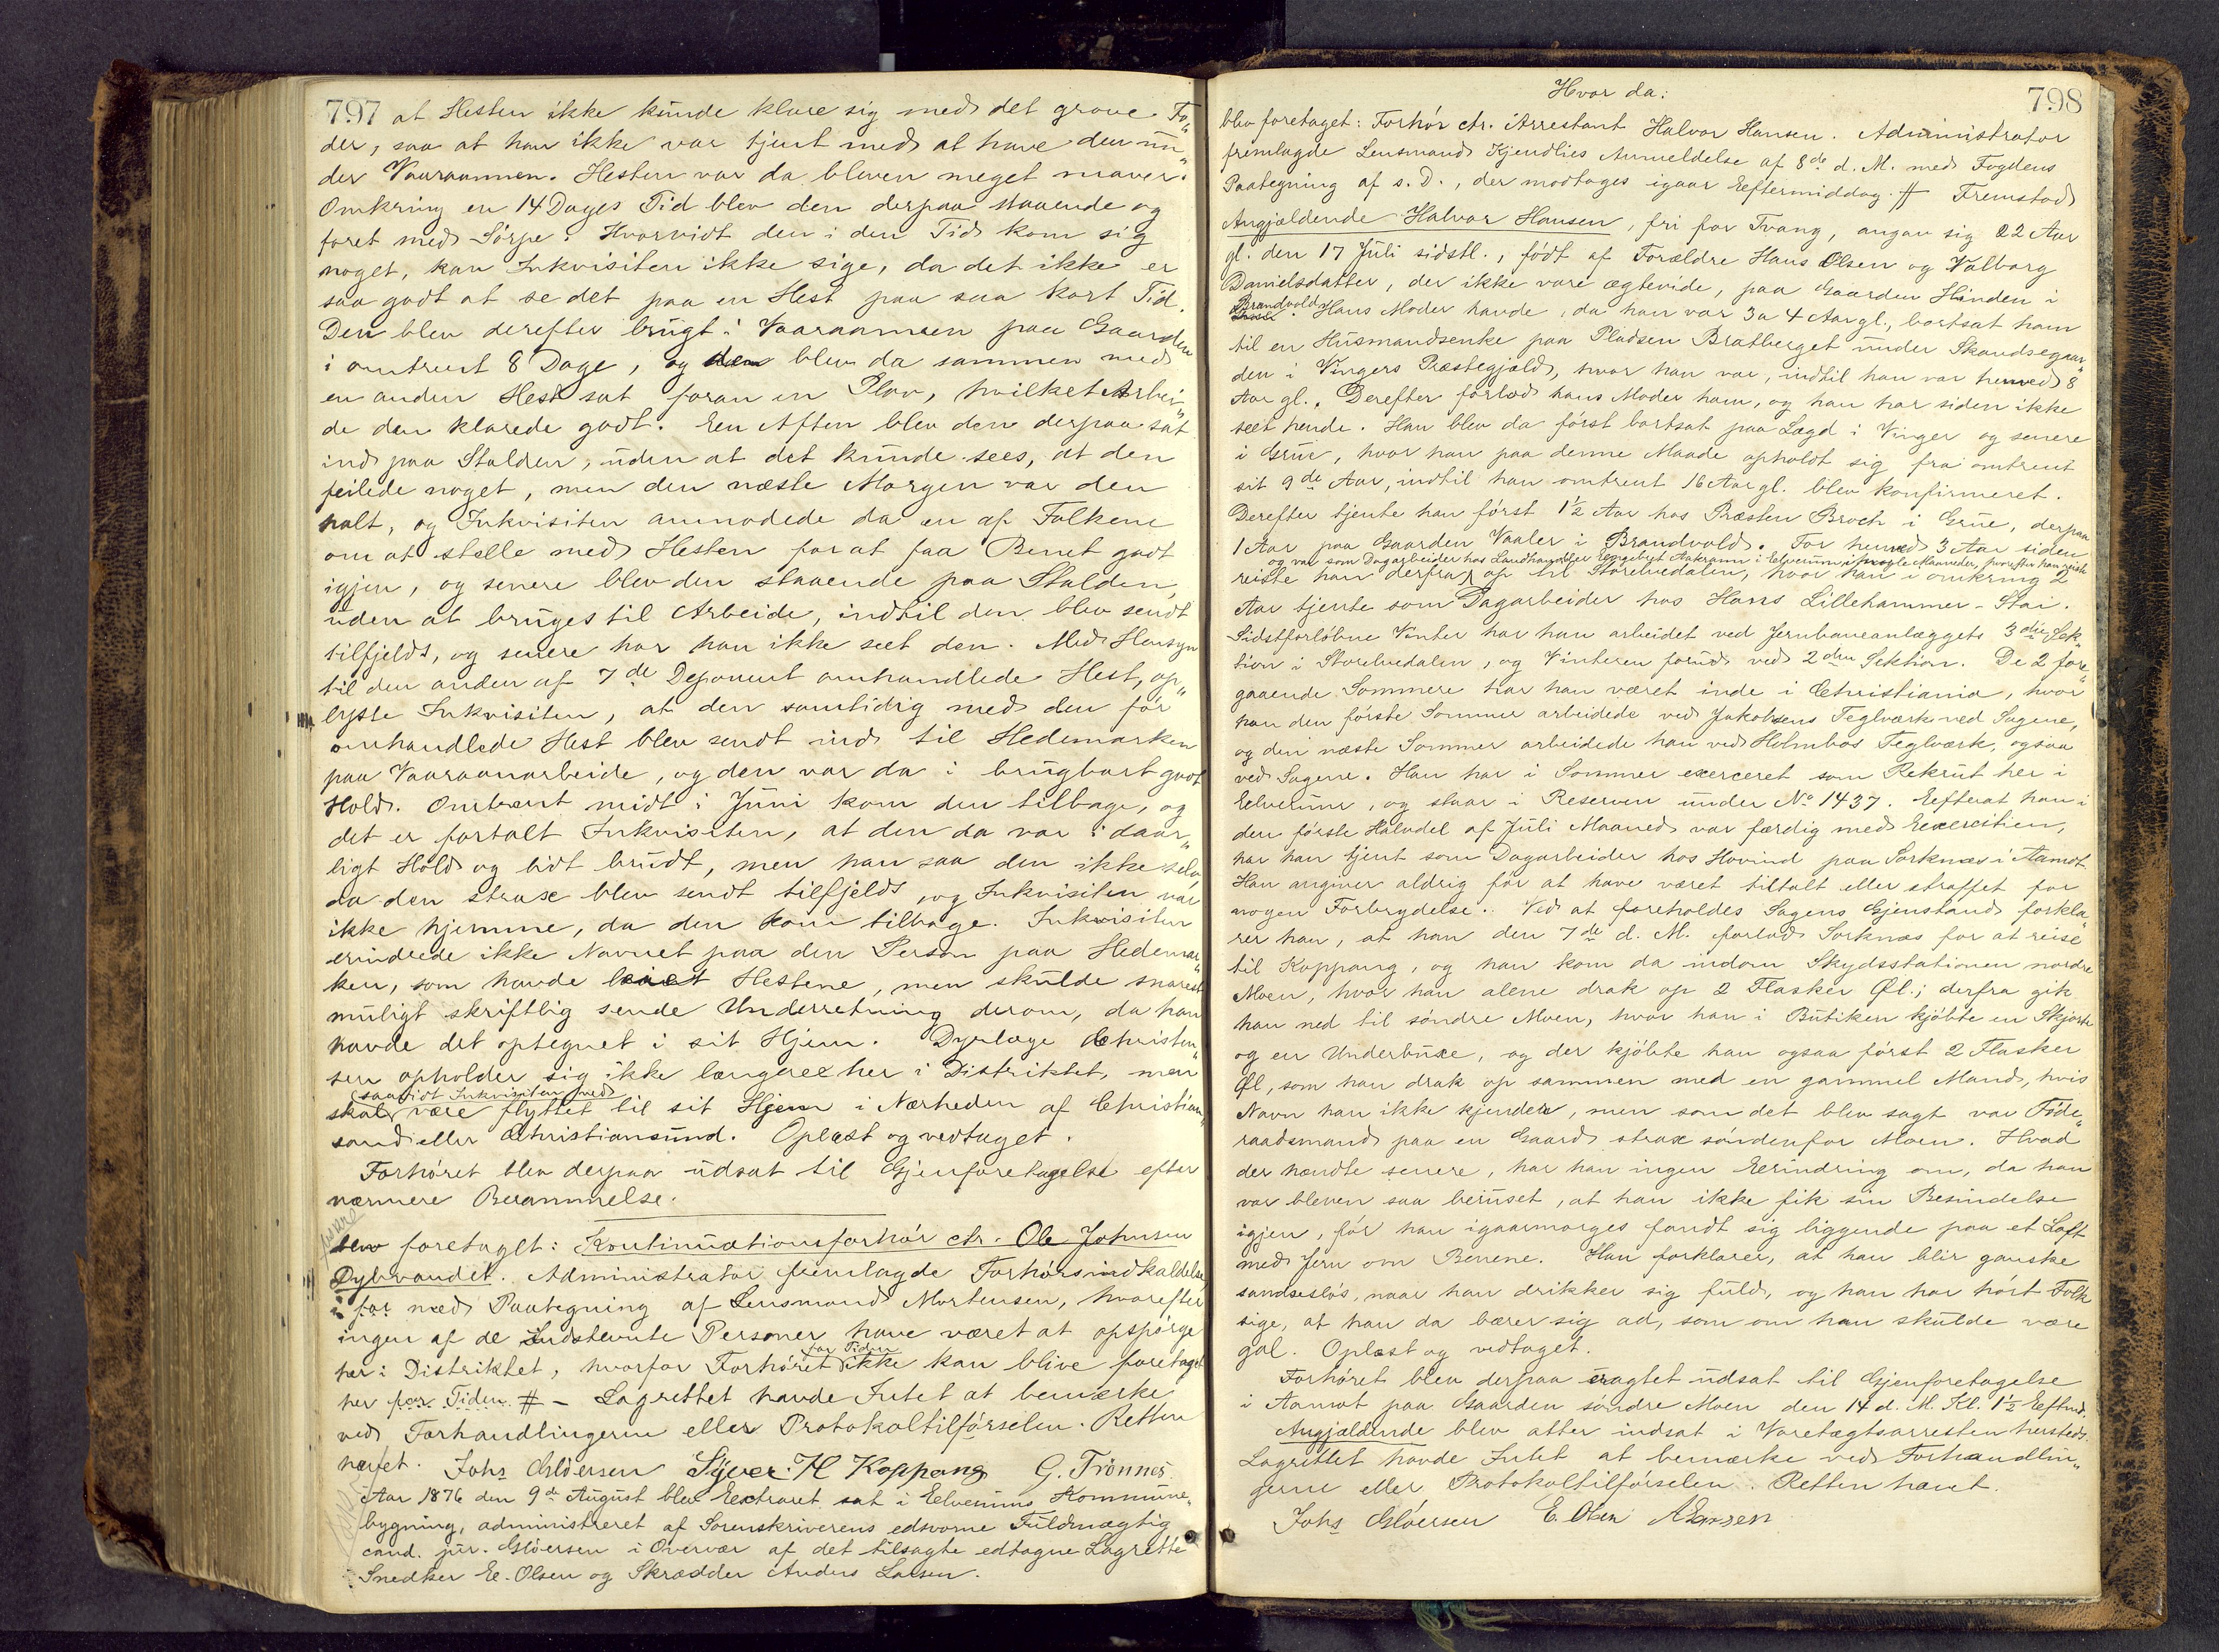 797 at Hesten ikke kunde klare sig med det grove Fo„
der, saa at han ikke var tjent med at have den un„
der Vaaraannen. Hesten var da bleven meget maver.
Omkring en 14 Dages Tid blev den derpaa staaende og
foret med Sörpe. Hvorvidt den i den Tid kom sig
noget, kan Inkvisiten ikke sige, da det ikke er
saa godt at se det paa en Hest paa saa kort Tid.
Den blev derefter brugt i Vaaraannen paa Gaarden
i omtrent 8 Dage, og den blev da sammen med
en anden Hest sat foran en Plov, hvilket Arbei„
de den klarede godt. Een Aften blev den derpaa sat
ind paa Stalden, uden at det kunde sees, at den
feilede noget, men den næste Morgen var den
halt, og Inkvisiten anmodede da en af Folkene
om at stelle med Hesten for at faa Benet godt
igjen, og senere blev den staaende paa Stalden,
uden at bruges til Arbeide, indtil den blev sendt
tilfjelds, og senere har han ikke seet den. Med Hensyn
til den anden af 7de Deponent omhandlede Hest, op„
lyste Inkvisiten, at den samtidig med den för
omhandlede Hest blev sendt ind til Hedemarken
paa Vaaraanarbeide, og den var da i brugbart godt
Hold. Omtrent midt i Juni kom den tilbage, og
det er fortalt Inkvisiten, at den da var i daar„
ligt Hold og lidt brudt, men han saa den ikke selv
da den strax blev sendt tilfjelds, og Inkvisiten var
ikke hjemme, da den kom tilbage. Inkvisiten
erindrede ikke Navnet paa den Person paa Hedemar„
ken, som havde leiet Hestene, men skulde snarest
muligt skriftlig sende Underretning derom, da han
havde det optegnet i sit Hjem. Dyrlæge Christen„
sen opholder sig ikke længere her i Distriktet, men
saavidt Inkvisiten ved
skal være flyttet til sit Hjem i Nærheden af Christian„
sand eller Christiansund. Oplæst og vedtaget.
Forhöret blev derpaa udsat til Gjenforetagelse efter
nærmere Berammelse.
blev foretaget: Kontinuationsforhör ctr. Ole Johnsen
Dybvandet. Administrator fremlagde Forhörsindkaldelse
i for med Paategning af Lensmand Mortensen, hvorefter
ingen af de Indstevnte Personer have været at opspörge
for Tiden
her i Distriktet, hvorfor Forhöret ikke kan blive foretaget
her for Tiden. # – Lagrettet havde Intet at bemærke
ved Forhandlingerne eller Protokoltilförselen. Retten
hævet. Johs Glöersen Syver H Koppang G. Trönnes
Aar 1876 den 9de August blev Extraret sat i Elverums Kommune„
bygning, administreret af Sorenskriverens edsvorne Fuldmægtig
cand. jur. Glöersen i Overvær af det tilsagte edtagne Lagrette
Snedker E. Olsen og Skrædder Anders Larsen.
Hvor da:
798
blev foretaget: Forhör ctr. Arrestant Halvor Hansen. Administrator
fremlagde Lensmand Kjendlies Anmeldelse af 8de d. M. med Fogdens
Paategning af s. D., der modtoges igaar Eftermiddag. # Fremstod
Angjældende Halvor Hansen, fri for Tvang, angav sig 22 Aar
gl. den 17 Juli sidstl., födt af Forældre Hans Olsen og Valborg
Danielsdatter, der ikke vare ægtevide, paa Gaarden Hinden i
Brandvold
Grue. Hans Moder havde, da han var 3 a 4 Aar gl., bortsat ham
til en Husmandsenke paa Pladsen Bratberget under Skandsegaar„
den i Vingers Præstegjeld, hvor han var, indtil han var henved 8
Aar gl. Derefter forlod hans Moder ham, og han har siden ikke
seet hende. Han blev da först bortsat paa Lægd i Vinger og senere
i Grue, hvor han paa denne Maade opholdt sig fra omtrent
sit 9de Aar, indtil han omtrent 16 Aar gl. blev konfirmeret.
Derefter tjente han först 1½ Aar hos Præsten Broch i Grue, derpaa
1 Aar paa Gaarden Vaaler i Brandvold. For henved 3 Aar siden
og var som Dagarbeider hos Landhandler Engebret Aakrann i Elverum i nogle Maaneder, hvorefter han reiste
reiste han derfra op til Storelvedalen, hvor han i omkring 2
Aar tjente som Dagarbeider hos Hans Lillehammer-Stai.
Sidstforløbne Vinter har han arbeidet ved Jernbaneanlæggets 3die Sek„
tion i Storelvedalen, og Vinteren forud ved 2den Sektion. De 2 fore„
gaaende Sommere har han været inde i Christiania, hvor
han den förste Sommer arbeidede ved Jakobsens Teglværk ved Sagene,
og den næste Sommer arbeidede han ved Holmbos Teglværk, ogsaa
ved Sagene. Han har i Sommer exerceret som Rekrut her i
Elverum, og staar i Reserven under No 1437. Efterat han i
den förste Halvdel af Juli Maaned var færdig med Exercitien,
har han tjent som Dagarbeider hos Hovind paa Sorknæs i Aamot.
Han angiver aldrig för at have været tiltalt eller straffet for
nogen Forbrydelse. Ved at foreholdes Sagens Gjenstand forkla„
rer han, at han den 7de d. M. forlod Sorknæs for at reise
til Koppang, og han kom da indom Skydsstationen nordre
Moen, hvor han alene drak op 2 Flasker Øl; derfra gik
han ned til söndre Moen, hvor han i Butiken kjöbte en Skjorte
og en Underbuxe, og der kjöbte han ogsaa först 2 Flasker
Øl, som han drak op sammen med en gammel Mand, hvis
Navn han ikke kjender, men som det blev sagt var Föde„
raadsmand paa en Gaard strax söndenfor Moen. Hvad
der hændte senere, har han ingen Erindring om, da han
var bleven saa beruset, at han ikke fik sin Besindelse
igjen, för han igaarmorges fandt sig liggende paa et Loft
med Jern om Benene. Han forklarer, at han blir ganske
sandseslös, naar han drikker sig fuld, og han har hört Folk
sige, at han da bærer sig ad, som om han skulde være
gal. Oplæst og vedtaget.
Forhöret blev derpaa eragtet udsat til Gjenforetagelse
i Aamot paa Gaarden söndre Moen den 14 d. M. Kl. 1½ Eftmd.
Angjældende blev atter indsat i Varetægtsarresten hersteds.
Lagrettet havde Intet at bemærke ved Forhandlin„
gerne eller Protokoltilförselen. Retten hævet.
Johs Glöersen E. Olsen A Larsen